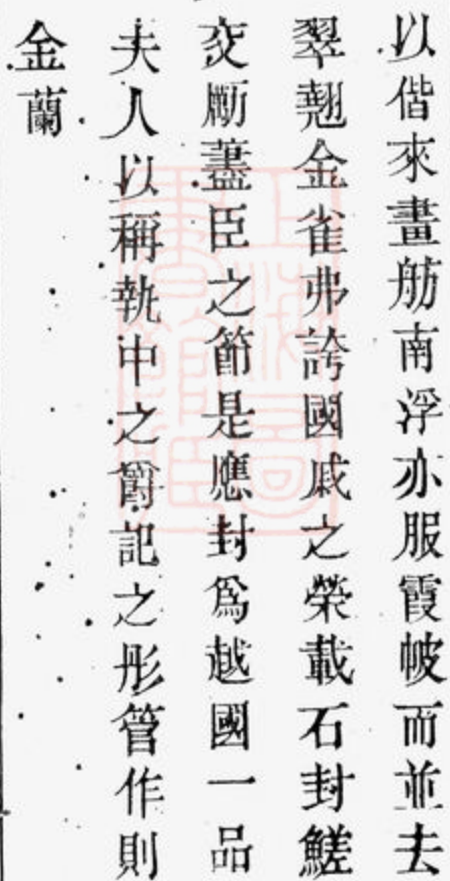 以偕來畫舫南浮亦服霞帔而並去
翠翹金雀弗誇國戚之榮載石封鮺
交勵藎臣之節是應封爲越國一品
夫人以稱執中之爵記之彤管作則
金蘭